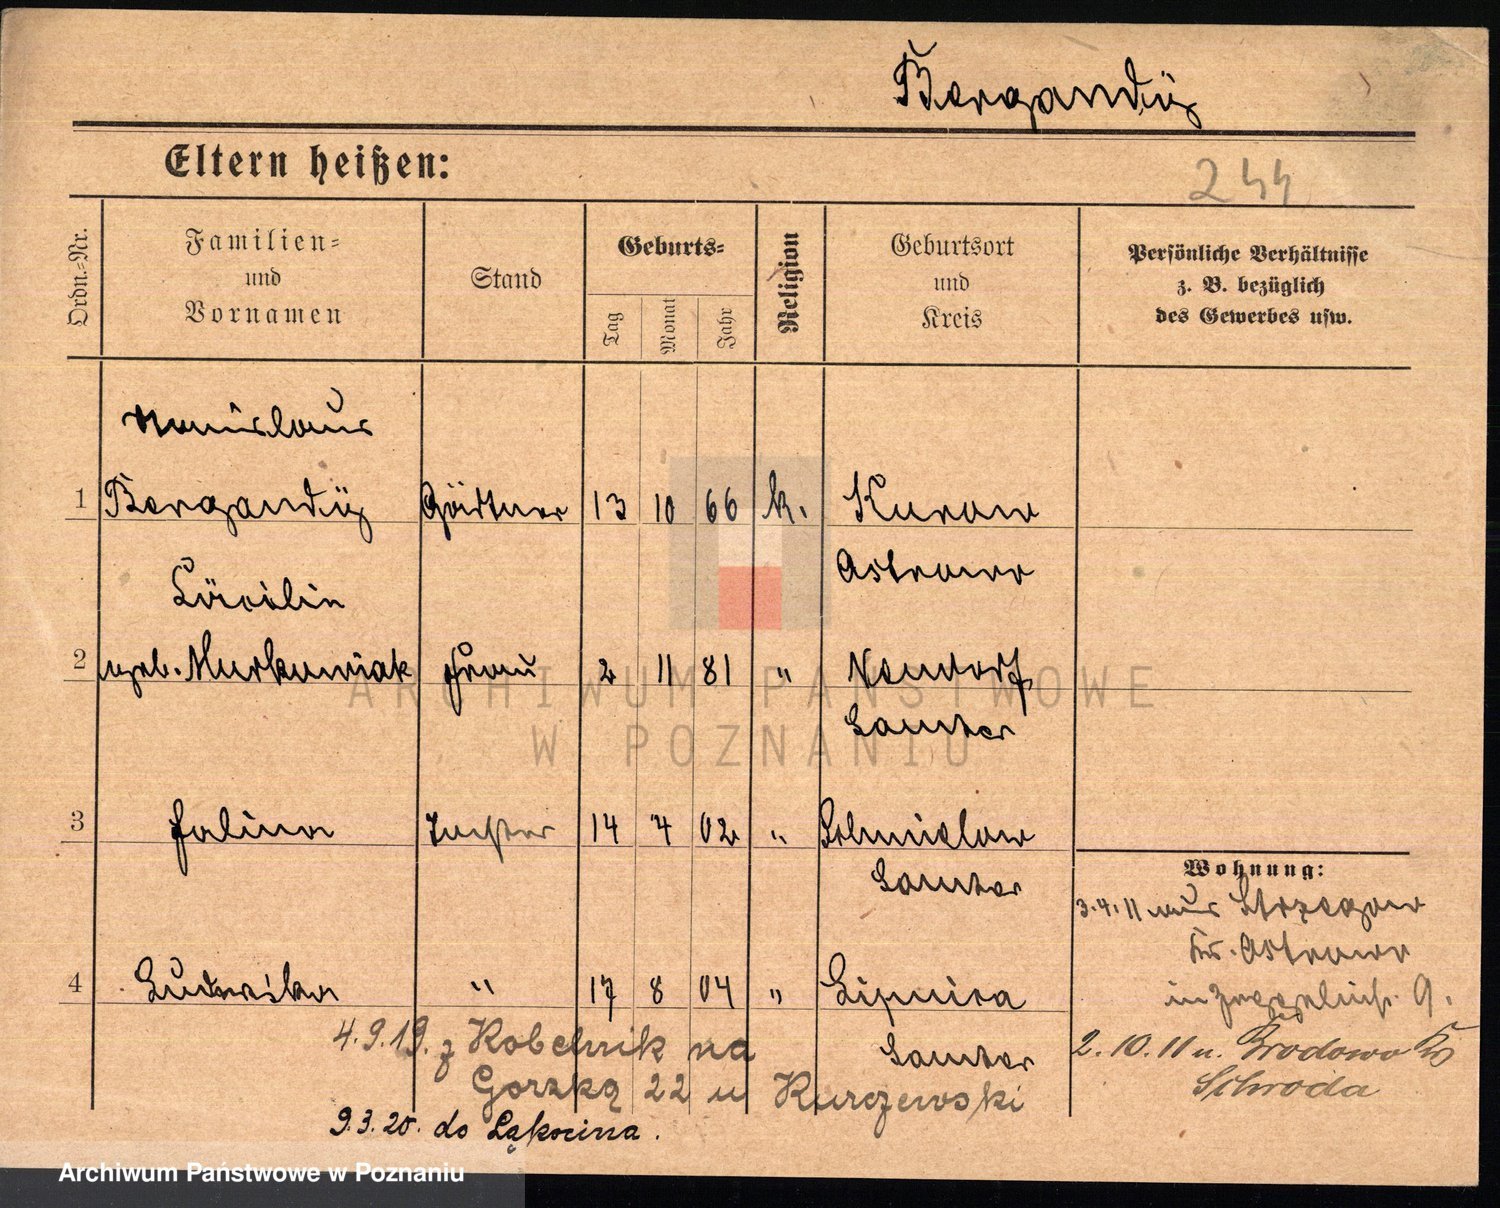 Bergandÿ
Eltern heißen:
244
Ordn.=Nr.
Familien=
und
Vornamen
Stand
Geburts=
Tag
Monat
Jahr
Religion
Geburtsort
und
Kreis
Persönliche Verhältnisse
z. B. bezüglich
des Gewerbes usw.
Stanislaus
1 Bergandÿ Gärtner 13 10 66 k. Kurow
Ostrowo
Cäcilie
2 geb. Murkowiak Frau 2 11 81 " Neudorf
Samter
3 Halina Tochter 14 4 02 "
Samter
Wohnung:
3.4.11 aus Strzegowo
Kr. Ostrowo
in 9.
4 Ludwika " 17 8 04 " Lipnica
Samter
2.10.11 n. Brodowo Kr
Schroda
4.9.19. z Kobelnik na
Gorzką 22 u Kurczewski
9.3.20. do Łąkocina.
ARCHIWUM PAŃSTWOWE
W POZNANIU
Archiwum Państwowe w Poznaniu